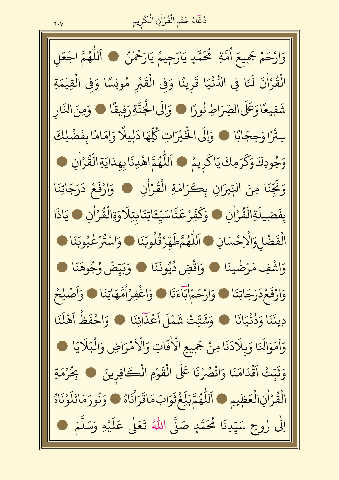 دُعَاءُ خَتْمِ الْقُرْاٰنِ الْكَرِيمِ
وَارْحَمْ جَمِيعَ اُمَّةِ مُحَمَّدٍ يَارَحِيمُ يَارَحْمٰنُ ۞ اَللّٰهُمَّ اجْعَلِ
الْقُرْاٰنَ لَنَا فِى الدُّنْيَا قَرِينًا وَفِى الْقَبْرِ مُونِسًا وَفِى الْقِيٰمَةِ
شَفِيعًا وَعَلَى الصِّرَاطِ نُورًا ۞ وَاِلَى الْجَنَّةِ رَفِيقًا ۞ وَمِنَ النَّارِ
سِتْرًا وَحِجَابًا ۞ وَاِلَى الْخَيْرَاتِ كُلِّهَا دَلِيلًا وَاِمَامًا بِفَضْلِكَ
وَجُودِكَ وَكَرَمِكَ يَاكَرِيمُ ۞ اَللّٰهُمَّ اهْدِنَا بِهِدَايَةِ الْقُرْاٰنِ ۞
وَنَجِّنَا مِنَ النِّيرَانِ بِكَرَامَةِ الْقُرْاٰنِ ۞ وَارْفَعْ دَرَجَاتِنَا
بِفَضِيلَةِ الْقُرْاٰنِ ۞ وَكَفِّرْ عَنَّا سَيِّئَاتِنَا بِتِلَاوَةِ الْقُرْاٰنِ ۞ يَاذَا
الْفَضْلِ وَالْاِحْسَانِ ۞ اَللّٰهُمَّ طَهِّرْ قُلُوبَنَا ۞ وَاسْتُرْ عُيُوبَنَا ۞
وَاشْفِ مَرْضٰينَا ۞ وَاقْضِ دُيُونَنَا ۞ وَبَيِّضْ وُجُوهَنَا ۞
وَارْفَعْ دَرَجَاتِنَا ۞ وَارْحَمْ اٰبَاءَنَا ۞ وَاغْفِرْ اُمَّهَاتِنَا ۞ وَاَصْلِحْ
دِينَنَا وَدُنْيَانَا ۞ وَشَتِّتْ شَمْلَ اَعْدَائِنَا ۞ وَاحْفَظْ اَهْلَنَا
وَاَمْوَالَنَا وَبِلَادَنَا مِنْ جَمِيعِ الْاٰفَاتِ وَالْاَمْرَاضِ وَالْبَلَايَا ۞
وَثَبِّتْ اَقْدَامَنَا وَانْصُرْنَا عَلَى الْقَوْمِ الْكَافِرِينَ ۞ بِحُرْمَةِ
الْقُرْاٰنِ الْعَظِيمِ ۞ اَللّٰهُمَّ بَلِّغْ ثَوَابَ مَاقَرَاْنَاهُ ۞ وَنُورَ مَاتَلَوْنَاهُ
اِلٰى رُوحِ سَيِّدِنَا مُحَمَّدٍ صَلَّى اللّٰهُ تَعَلٰى عَلَيْهِ وَسَلَّمَ ۞